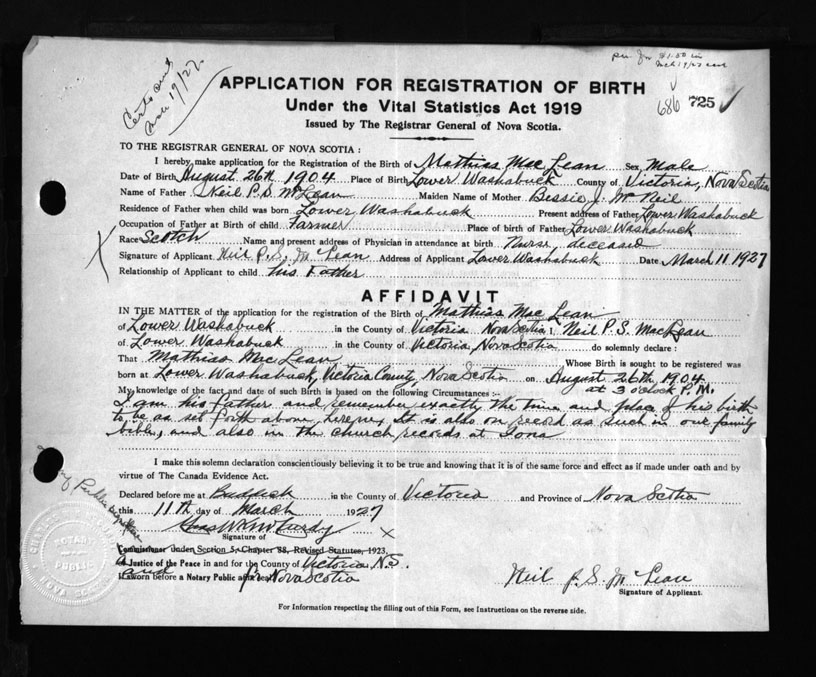 pd. for $1.00 in
Mch 19/27
Certs and
Mar 19/27.
APPLICATION FOR REGISTRATION OF BIRTH
Under the Vital Statistics Act 1919
686 725
Issued by The Registrar General of Nova Scotia.
TO THE REGISTRAR GENERAL OF NOVA SCOTIA :
I hereby make application for the Registration of the Birth of Mathias MacLean Sex Male
Date of Birth August 26th 1904 Place of Birth Lower Washabuck County of Victoria, Nova Scotia
Name of Father Neil P.S. McLean Maiden Name of Mother Bessie J. McNeil
Residence of Father when child was born Lower Washabuck Present address of Father Lower Washabuck
Occupation of Father at Birth of child Farmer Place of birth of Father Lower Washabuck
Race Scotch Name and present address of Physician in attendance at birth Nurse, deceased
Signature of Applicant Neil P.S. McLean Address of Applicant Lower Washabuck Date March 11 1927
Relationship of Applicant to child his Father
AFFIDAVIT
IN THE MATTER of the application for the registration of the Birth of Mathias MacLean
of Lower Washabuck in the County of Victoria Nova Scotia I, Neil P.S. MacLean
of Lower Washabuck in the County of Victoria, Nova Scotia do solemnly declare :
That Mathias MacLean Whose Birth is sought to be registered was
born at Lower Washabuck, Victoria County, Nova Scotia on August 26th 1904
at 3 o'clock P.M.
My knowledge of the fact and date of such Birth is based on the following Circumstances :-
I am his father and remember exactly the time and place of his birth
to be as set forth above hereon. It is also on record as such in our family
bible, and also in the church records at Iona
I make this solemn declaration conscientiously believing it to be true and knowing that it is of the same force and effect as if made under oath and by
virtue of The Canada Evidence Act.
Declared before me at Baddeck in the County of Victoria and Province of Nova Scotia
this 11th day of March 1927
Signature of
Commissioner under Section 5, Chapter 88, Revised Statutes, 1923,
A Justice of the Peace in and for the County of Victoria N.S.
and for Nova Scotia
If sworn before a Notary Public affix seal
NOTARY PUBLIC
Neil P.S. McLean
Signature of Applicant.
For Information respecting the filling out of this Form, see Instructions on the reverse side.